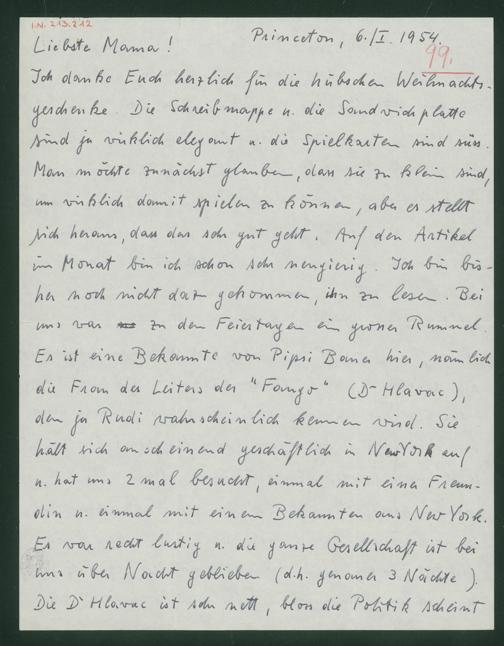 I.N. 213.212
Princeton, 6./I. 1954.
99.
Liebste Mama!
Ich danke Euch herzlich für die hübschen Weihnachts-
geschenke. Die Schreibmappe u. die Sandwichplatte
sind ja wirklich elegant u. die Spielkarten sind süss.
Man möchte zunächst glauben, dass sie zu klein sind,
um wirklich damit spielen zu können, aber es stellt
sich heraus, dass das sehr gut geht. Auf den Artikel
im Monat bin ich schon sehr neugierig. Ich bin bis-
her noch nicht dazu gekommen, ihn zu lesen. Bei
uns war zu den Feiertagen ein grosser Rummel.
Es ist eine Bekannte von Pipsi Bauer hier, nämlich
die Frau des Leiters des "Fango" (Dr Hlavac),
den ja Rudi wahrscheinlich kennen wird. Sie
hält sich anscheinend geschäftlich in New York auf
u. hat uns 2 mal besucht, einmal mit einer Freun-
din u. einmal mit einem Bekannten aus New York.
Es war recht lustig u. die ganze Gesellschaft ist bei
uns über Nacht geblieben (d.h. genauer 3 Nächte).
Die Dr Hlavac ist sehr nett, bloss die Politik scheint